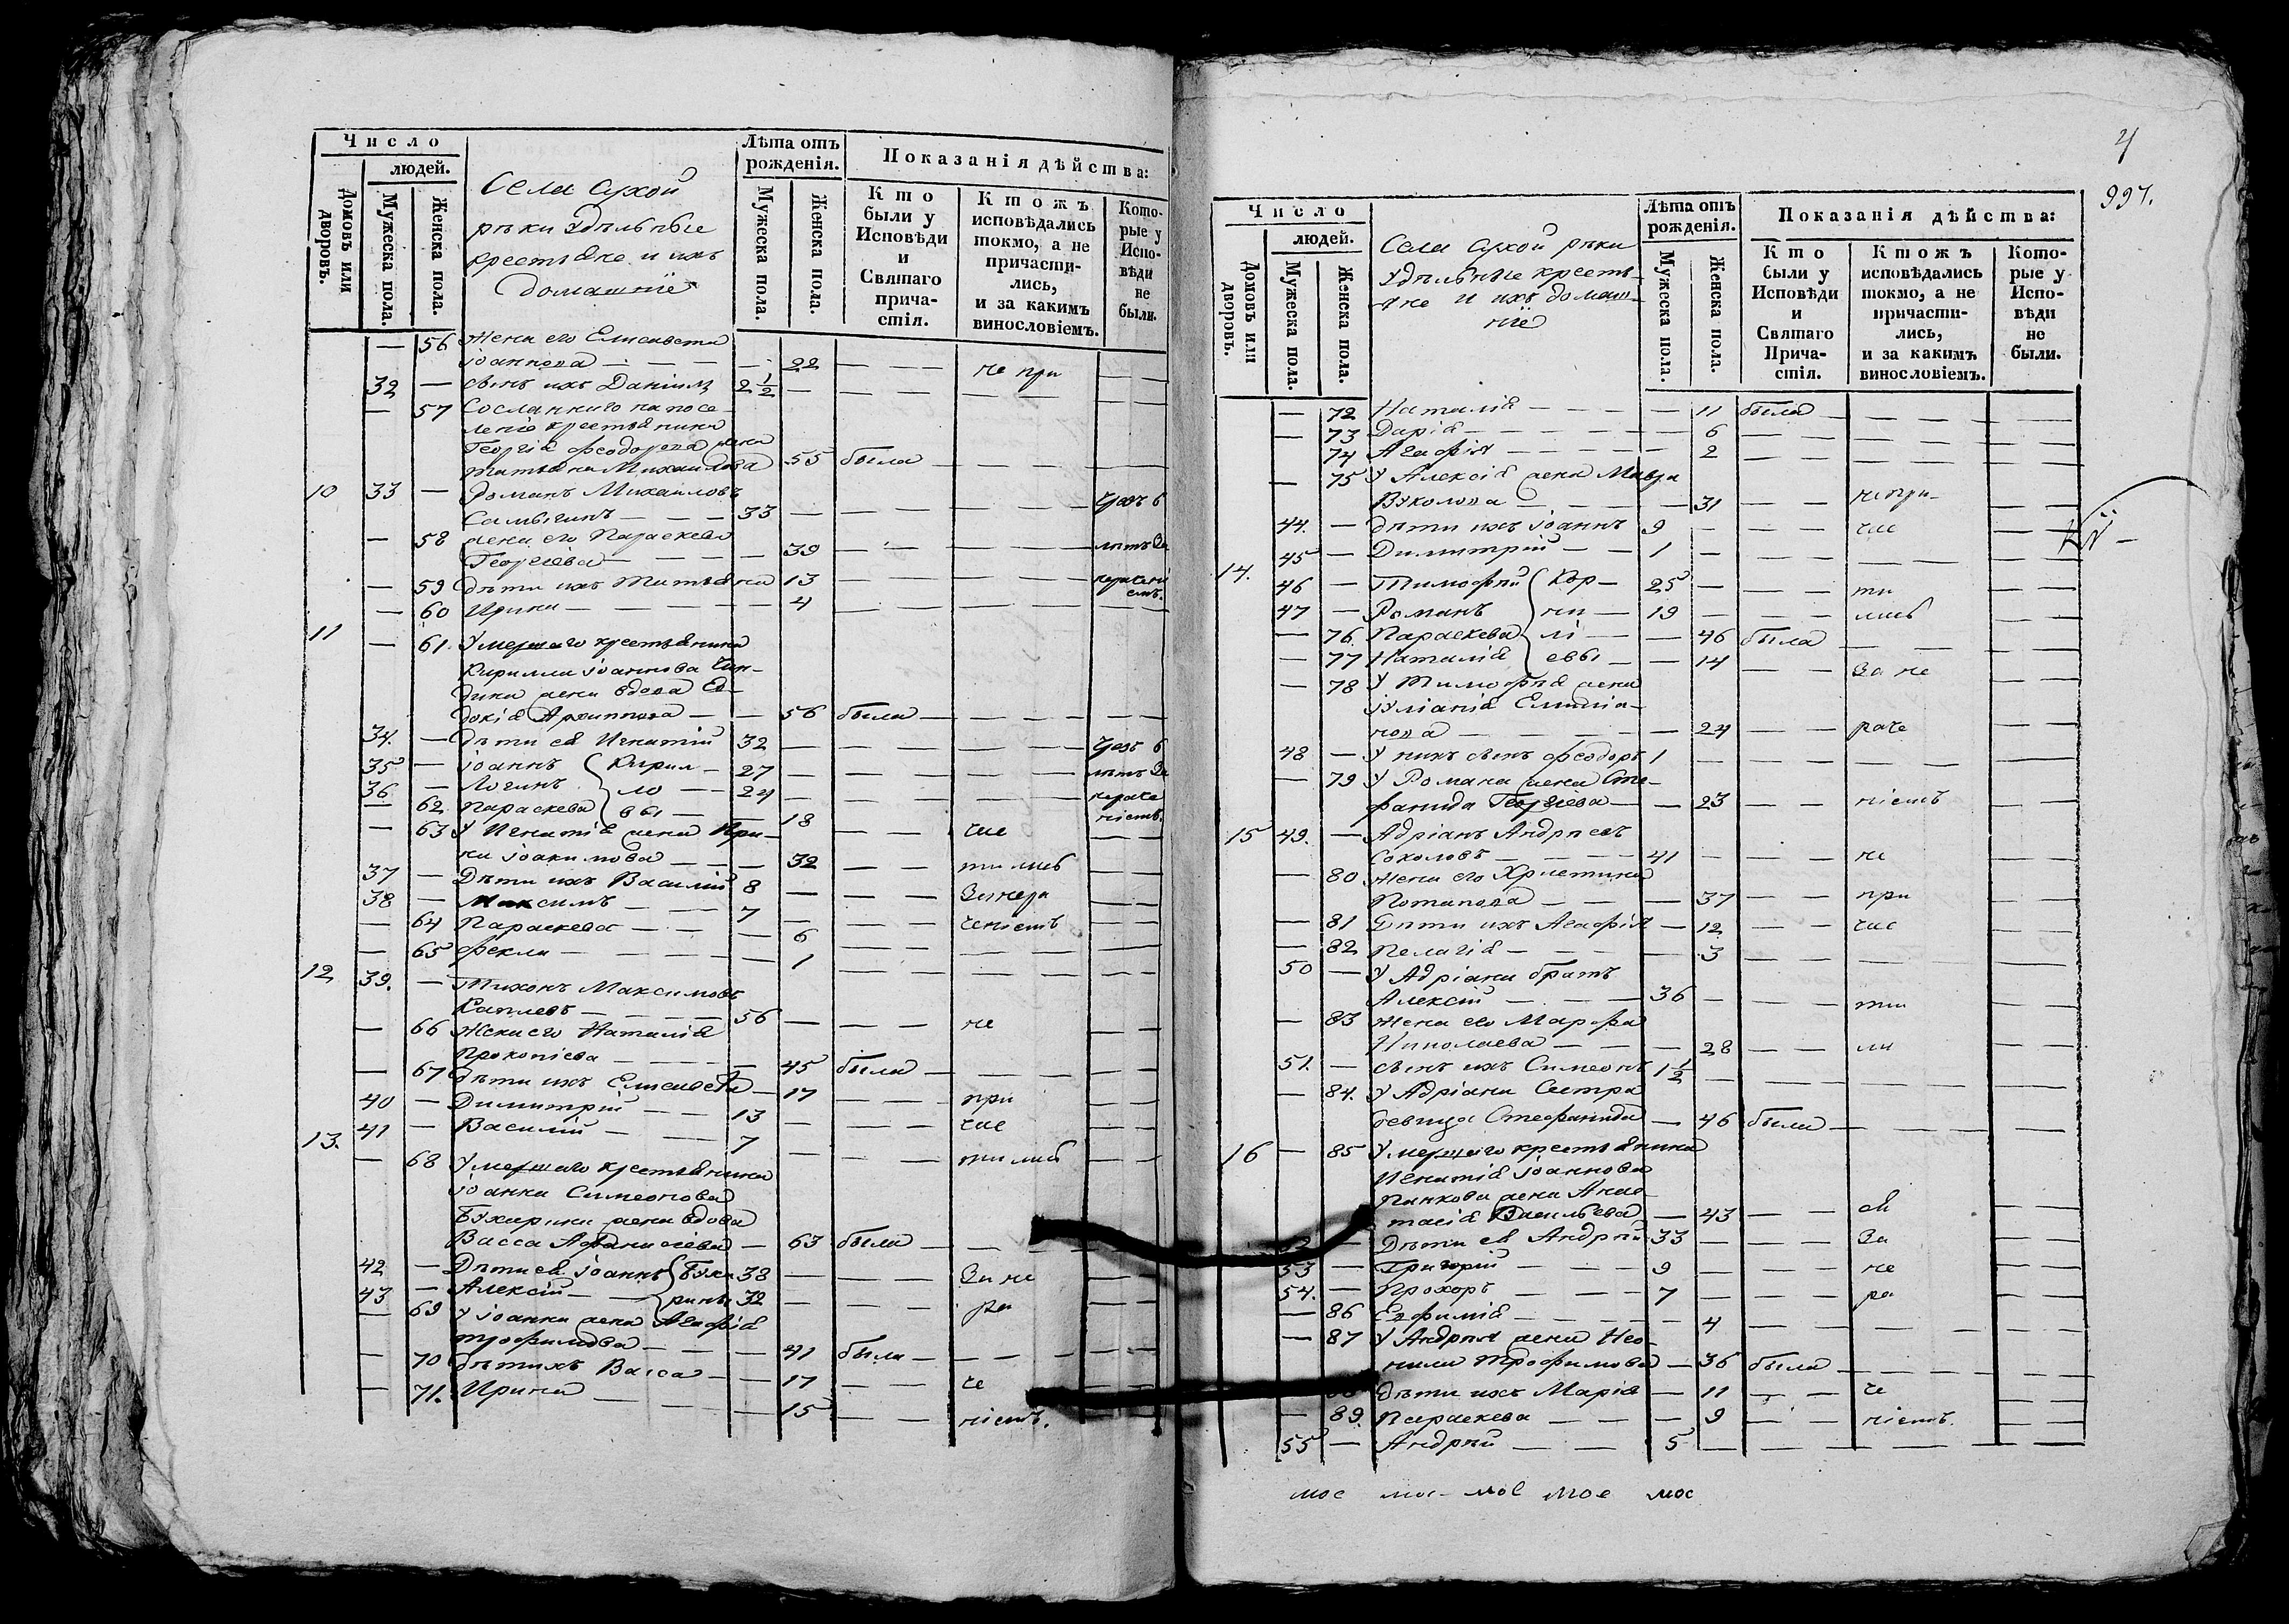 Число
людей.
Домовъ или дворовъ.
Мужеска пола.
Женска пола.
Села Сухой
рѣки Удѣльные
крестьяне и ихъ
домашніе
Лѣта отъ рожденія.
Мужеска пола.
Женска пола.
Показанія дѣйства:
Кто были у Исповѣди и Святаго причастія.
Кто жъ исповѣдались токмо, а не причастились, и за какимъ винословіемъ.
Которые у Исповѣди не были.
— 56 Жена его Елисавета
Іоаннова — — — 22 — — не при — —
32 — сынъ ихъ Даніилъ 2 1/2 — — — — —
— 57 Сосланнаго на посе-
леніе крестьянина
Георгія Феодорова жена
Татьяна Михаилова 55 была — — — —
10 33 — Романъ Михаиловъ
Самыгинъ — — — 33 — — — — Чрезъ 6
— 58 жена его Параскева
Георгіева — — — 39 — — — — лѣтъ За
— 59 дѣти ихъ Татьяна 13 — — — — нераченi
емъ.
— 60 Ирина — — — — 4 — — — —
11 — 61. Умершаго крестьянина
Кирилла Іоаннова
жена вдова Ев-
докія Архиппова — — 56 была — — — —
34. — дѣти ея Игнатій 32 — — — — Чрез 6
35 — Іоаннъ Кирил- 27 — — — — лѣтъ За
36 — Логинъ ло — 24 — — — нераче
— 62 Параскева вы — — 18 — — — ніемъ.
— 63 У Игнатія жена Ири-
на Іоакимова — — — 32 — — час — —
37 — Дѣти ихъ Василій 8 — — тились — —
38 — Максимъ — — 7 — — Занера — —
— 64 Параскева — — — 6 — — ченіемъ — —
— 65 Фекла — — — — 1 — — — —
12 39. — Тихонъ Максимовъ
Каплевъ — — — 56 — — не — —
— 66 Жена его Наталія
Прокопіева — — — 45 была — — — —
— 67 дѣти ихъ Елисавета — 17 — — при — —
40 — Димитрій — — 13 — — час — —
41 — Василій — — 7 — — тились — —
13. — 68 Умершаго крестьянина
Іоанна Симеонова
Бухарина жена вдова
Васса Афанасіева — 63 была — — — —
42 — Дѣти ея Іоаннъ Буха 38 — — За не — —
43 — Алексій — рины 32 — — ра — —
— 69 У Іоанна жена Агафія
Трофимова — — — 41 была — — — —
— 70 дѣти ихъ Васса — — 17 — — че — —
— 71. Ирина — — — — 15 — — ніемъ. — —
4
997.
Число
людей.
Домовъ или дворовъ.
Мужеска пола.
Женска пола.
Села Сухой рѣки
Удѣльные кресть-
яне и ихъ домаш-
ніе
Лѣта отъ рожденія.
Мужеска пола.
Женска пола.
Показанія дѣйства:
Кто были у Исповѣди и Святаго Причастія.
Кто жъ исповѣдались токмо, а не причастились, и за какимъ винословіемъ.
Которые у Исповѣди не были.
— 72 Наталія — — — — 11 была — — — —
— 73 Дарія — — — — 6 — — — —
74 Агафія — — — — 2 — — — —
— 75 У Алексія жена Мавра
Вуколова — — — 31 — — не при- — —
44. — дѣти ихъ Іоаннъ 9 — — час — —
45 — Димитрій — — 1 — — — —
14. 46 — Тимофѣй Кор- 25 — — ти — —
47 — Романъ ни — 19 — — лись — —
— 76. Параскева лі — — 46 была — — — —
— 77 Наталія евы — — 14 — — За не — —
— 78 У Тимофѣя жена
Іуліанія Емиліа-
нова — — — 24 — — раче — —
48 — У нихъ сынъ Феодоръ 1 — — — — —
— 79 У Романа жена Сте-
фанида Георгіева — — 23 — — ніемъ — —
15 49. — Адріанъ Андреевъ
Соколовъ — — — 41 — — не — —
— 80 Жена его Христина
Потапова — — — 37 — — при — —
— 81 Дѣти ихъ Агафія — 12 — — час — —
— 82 Пелагія — — — 3 — — — —
50 — У Адріана братъ
Алексій — — — 36 — — ти — —
— 83 Жена его Марфа
Николаева — — — 28 — — ли — —
51. — сынъ ихъ Симеонъ 1 1/2 — — — —
— 84. У Адріана Сестра
девица Стефанида — 46 была — — — —
16 — 85 Умершаго крестьянина
Игнатія Іоаннова
Панкова жена Анас-
тасія Васильева — 43 — — сь — —
52 — Дѣти ея Андрѣй 33 — — За — —
53 — Григорій — — 9 — — не — —
54. — Прохоръ — — 7 — — ра — —
— 86 Евфимія — — — 4 — — — —
— 87 У Андрѣя жена Нео-
нила Трофимова — 36 была — — — —
88 Дѣти ихъ Марія — 11 — — че — —
— 89. Параскева — — — 9 — — ніемъ. — —
55 — Андрѣй — — 5 — — — —
мое мое мое мое мое